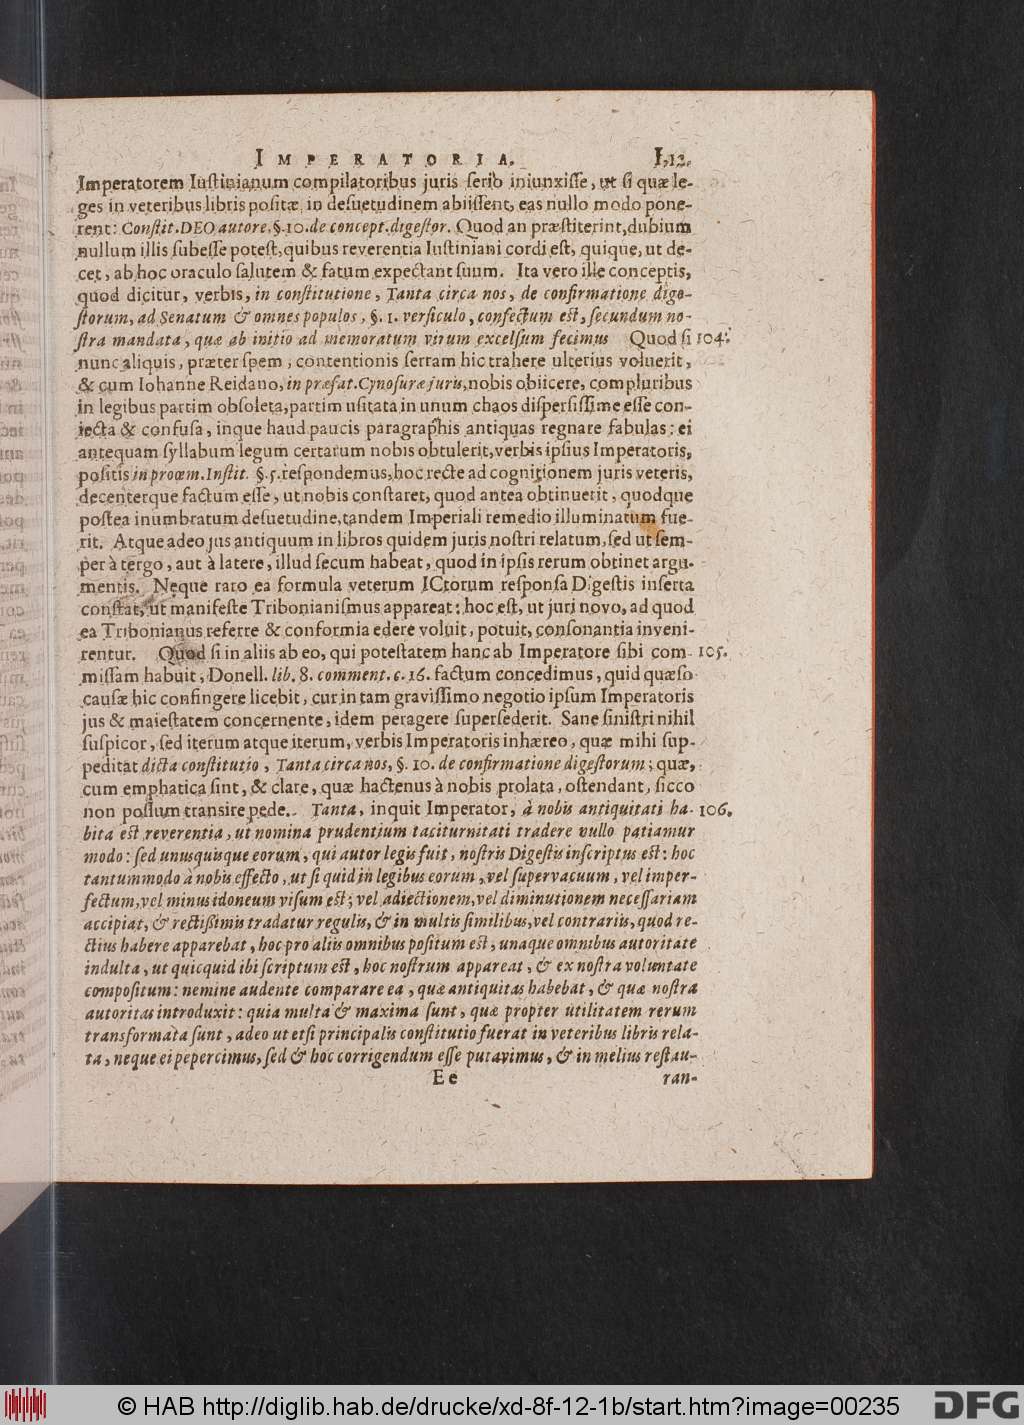 IMPERATORIA. 112.
Imperatorem Iuſtinianum compilatoribus juris ſerio iniunxiſſe, ut ſi quæ le-
ges in veteribus libris poſitæ in deſuetudinem abiiſſent, eas nullo modo pone-
rent: Conſtit. DEO autore. §. 10. de concept. digeſtor. Quod an præſtiterint, dubium
nullum illis ſubeſſe poteſt, quibus reverentia Iuſtiniani cordi eſt, quique, ut de-
cet, ab hoc oraculo ſalutem & fatum expectant ſuum. Ita vero ille conceptis,
quod dicitur, verbis, in conſtitutione, Tanta circa nos, de confirmatione dige-
ſtorum, ad Senatum & omnes populos, §. 1. verſiculo, confectum eſt, ſecundum no-
ſtra mandata, quæ ab initio ad memoratum virum excelſum fecimus Quod ſi 104.
nunc aliquis, præter ſpem, contentionis ſerram hic trahere ulterius voluerit,
& cum Iohanne Reidano, in præfat. Cynoſuræ juris, nobis obiicere, compluribus
in legibus partim obſoleta, partim uſitata in unum chaos diſperſiſſime eſſe con-
iecta & confuſa, inque haud paucis paragraphis antiquas regnare fabulas: ei
antequam ſyllabum legum certarum nobis obtulerit, verbis ipſius Imperatoris,
poſitis in proœm. Inſtit. §. 5. reſpondemus, hoc recte ad cognitionem juris veteris,
decenterque factum eſſe, ut nobis conſtaret, quod antea obtinuerit, quodque
poſtea inumbratum deſuetudine, tandem Imperiali remedio illuminatum fue-
rit. Atque adeo jus antiquum in libros quidem juris noſtri relatum, ſed ut ſem-
per à tergo, aut à latere, illud ſecum habeat, quod in ipſis rerum obtinet argu-
mentis. Neque raro ea formula veterum ICtorum reſponſa Digeſtis inſerta
conſtat, ut manifeſte Tribonianiſmus appareat: hoc eſt, ut juri novo, ad quod
ea Tribonianus referre & conformia edere voluit, potuit, conſonantia inveni-
rentur. Quod ſi in aliis ab eo, qui poteſtatem hanc ab Imperatore ſibi com- 105.
miſſam habuit, Donell. lib. 8. comment. c. 16. factum concedimus, quid quæſo
cauſæ hic confingere licebit, cur in tam graviſſimo negotio ipſum Imperatoris
jus & maieſtatem concernente, idem peragere ſuperſederit. Sane ſiniſtri nihil
ſuſpicor, ſed iterum atque iterum, verbis Imperatoris inhæreo, quæ mihi ſup-
peditat dicta conſtitutio, Tanta circa nos, §. 10. de confirmatione digeſtorum; quæ,
cum emphatica ſint, & clare, quæ hactenus à nobis prolata, oſtendant, ſicco
non poſſum tranſire pede. Tanta, inquit Imperator, à nobis antiquitati ha- 106.
bita eſt reverentia, ut nomina prudentium taciturnitati tradere nullo patiamur
modo: ſed unusquisque eorum, qui autor legis fuit, noſtris Digeſtis inſcriptus eſt: hoc
tantummodo à nobis effecto, ut ſi quid in legibus eorum, vel ſupervacuum, vel imper-
fectum, vel minus idoneum viſum eſt; vel adiectionem, vel diminutionem neceſſariam
accipiat, & rectißimis tradatur regulis, & in multis ſimilibus, vel contrariis, quod re-
ctius habere apparebat, hoc pro aliis omnibus poſitum eſt, unaque omnibus autoritate
indulta, ut quicquid ibi ſcriptum eſt, hoc noſtrum appareat, & ex noſtra voluntate
compoſitum: nemine audente comparare ea, quæ antiquitas habebat, & quæ noſtra
autoritas introduxit: quia multa & maxima ſunt, quæ propter utilitatem rerum
transformata ſunt, adeo ut etſi principalis conſtitutio fuerat in veteribus libris rela-
ta, neque ei pepercimus, ſed & hoc corrigendum eſſe putavimus, & in melius reſtau-
Ee ran-
© HAB http://diglib.hab.de/drucke/xd-8f-12-1b/start.htm?image=00235 DFG